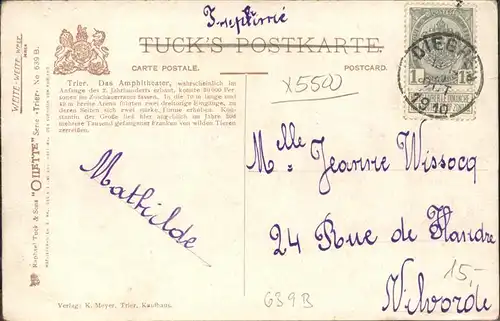 Imprimé
TUCK'S POSTKARTE.
CARTE POSTALE.
POSTCARD.
Trier. Das Amphitheater, wahrscheinlich im
Anfange des 2. Jahrhunderts erbaut, konnte
Personen im Zuschauerraum fassen. In die 70 m lange und
49 m breite Arena führten zwei dreifache Eingänge, zu
deren Seiten sich zwei starke Türme erhoben. Kon-
stantin der Große ließ hier angeblich im Jahre 306
mehrere Tausend gefangener Franken von wilden Tieren
zerreißen.
x5500
DIEST
1910
1c
1c
Melle Jeanne Wissocq
Mathilde
24 Rue de Flandre
Vilvorde
15,-
639B
Verlag: K. Meyer, Trier, Kaufhaus.
WRITE WRITE WELL
Raphael Tuck & Sons "OILETTE" Serie «Trier» No 639 B.